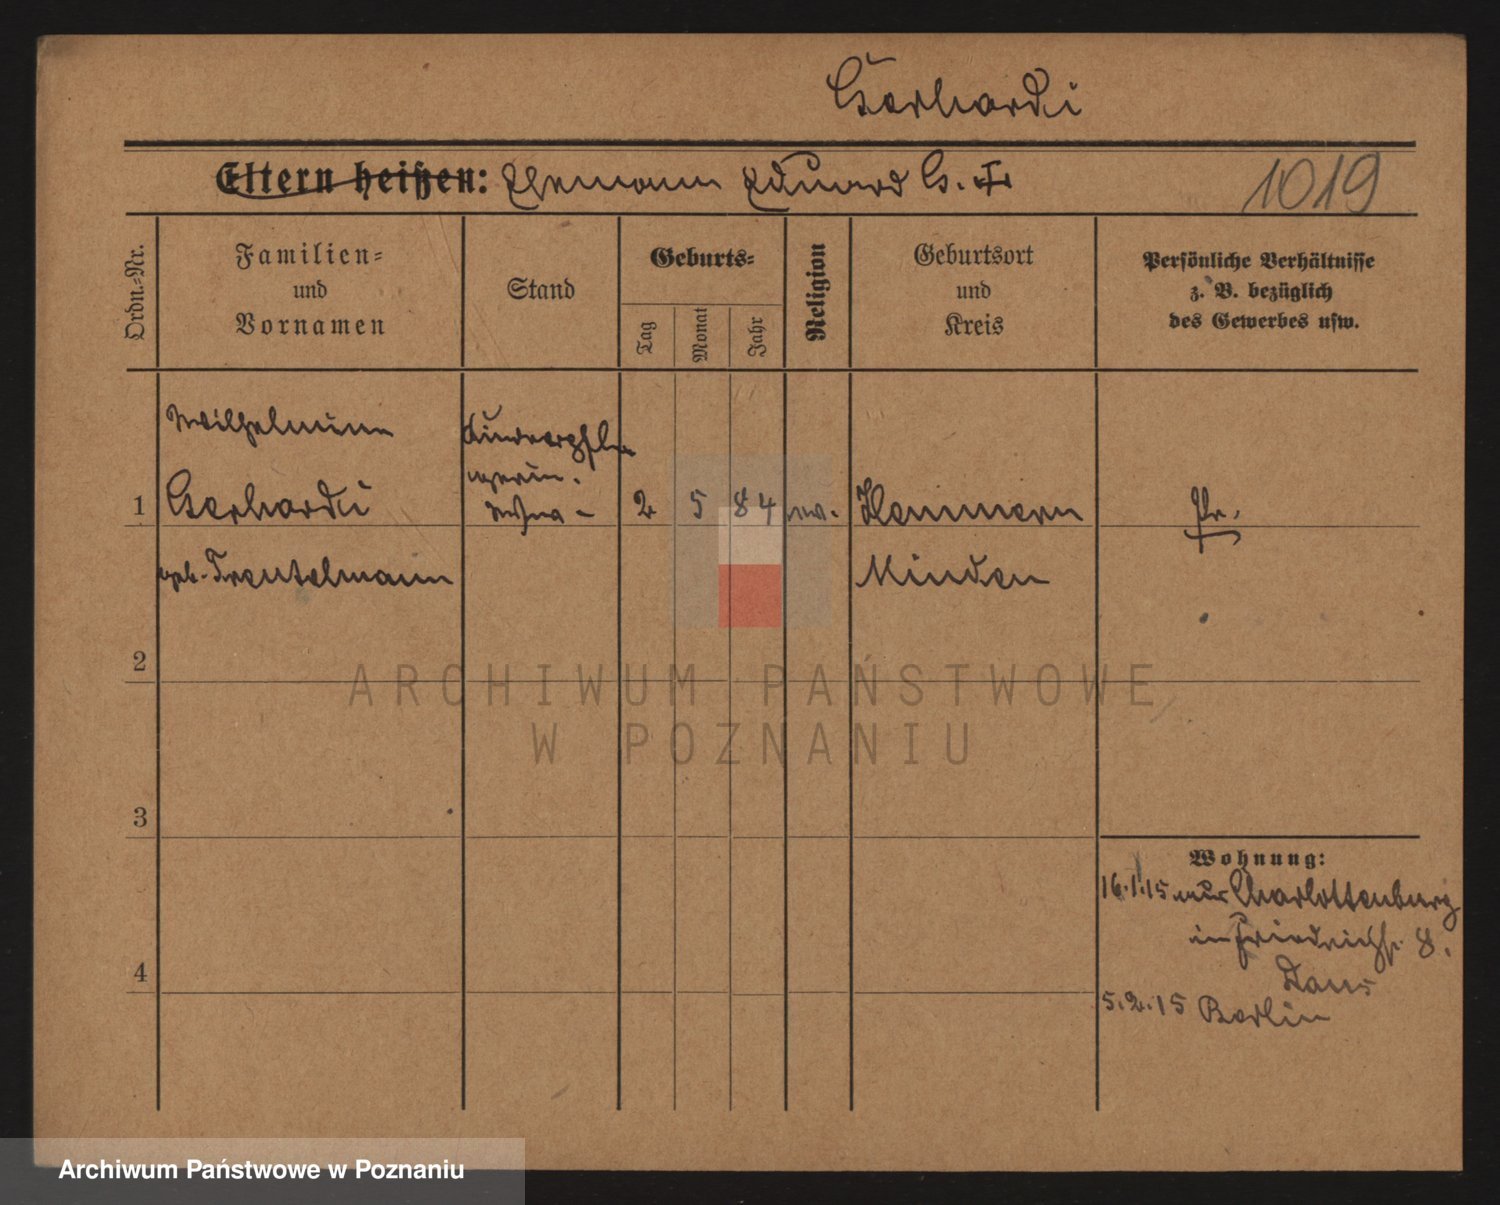 Gerhardi
Eltern heißen: Ehemann Eduard G. †
1019
Ordn.-Nr.
Familien-
und
Vornamen
Stand
Geburts-
Tag
Monat
Jahr
Religion
Geburtsort
und
Kreis
Persönliche Verhältnisse
z. B. bezüglich
des Gewerbes usw.
Wilhelmine
Kinderpfle
gerin.
1 Gerhardi
Witwe - 2 5 84 ev. Hemmern Pr.
geb. Trentelmann Minden
2
3
4
Wohnung:
16.1.15 aus Charlottenburg
in Friedrichstr. 8.
5.2.15 Berlin
ARCHIWUM PAŃSTWOWE
W POZNANIU
Archiwum Państwowe w Poznaniu